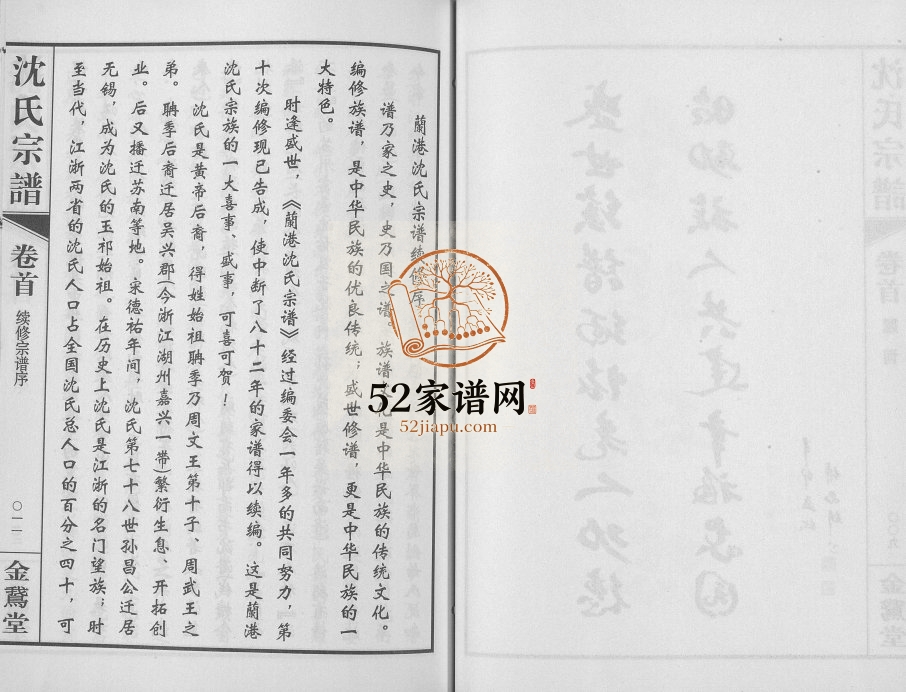 蘭港沈氏宗谱续修序
谱乃家之史，史乃国之谱。族谱文化是中华民族的传统文化。
编修族谱，是中华民族的优良传统；盛世修谱，更是中华民族的一
大特色。
时逢盛世，《蘭港沈氏宗谱》经过编委会一年多的共同努力，第
十次编修现已告成，使中断了八十二年的家谱得以续编。这是蘭港
沈氏宗族的一大喜事、盛事，可喜可贺！
沈氏是黄帝后裔，得姓始祖聃季乃周文王第十子、周武王之
弟。聃季后裔迁居吴兴郡(今浙江湖州嘉兴一带)繁衍生息、开拓创
业。后又播迁苏南等地。宋德祐年间，沈氏第七十八世孙昌公迁居
无锡，成为沈氏的玉祁始祖。在历史上沈氏是江浙的名门望族；时
至当代，江浙两省的沈氏人口占全国沈氏总人口的百分之四十，可
沈氏宗譜
卷首
续修宗谱序
〇一一
金鵞堂
52家谱网
52jiapu.com